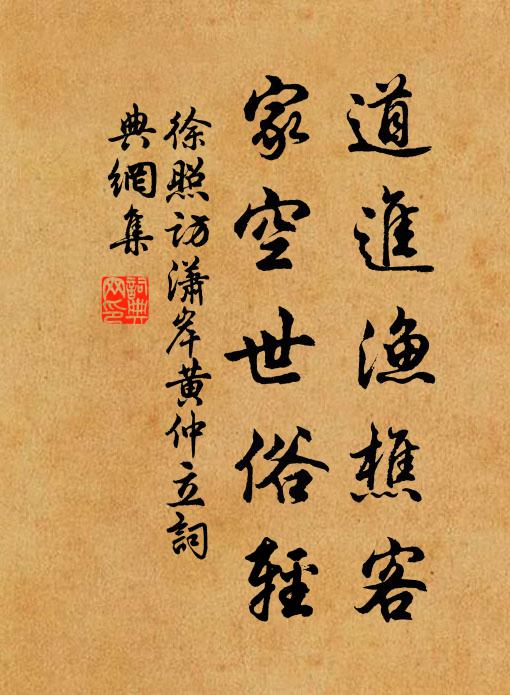 道進漁樵客
家空世俗輕
徐照訪瀟岸黄仲立詞
典網集
詞典
网印